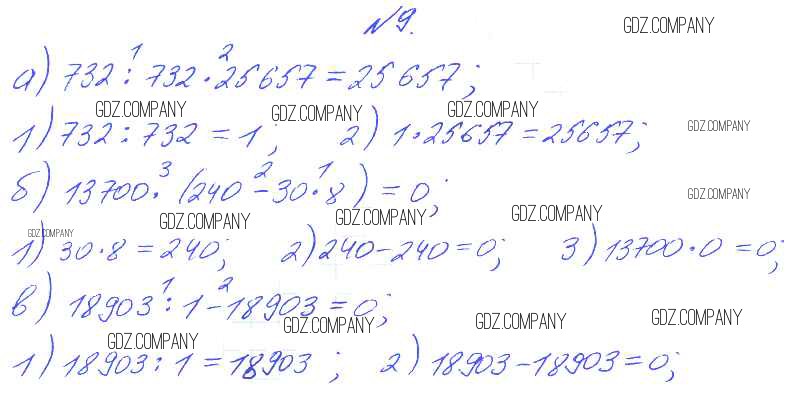 №9. GDZ.COMPANY
а) 732 : 732 · 25657 = 25657; 1 2
GDZ.COMPANY GDZ.COMPANY GDZ.COMPANY
1) 732 : 732 = 1; 2) 1 · 25657 = 25657; GDZ.COMPANY
б) 13700 · (240 - 30 · 8) = 0; 3 2 1 GDZ.COMPANY
GDZ.COMPANY GDZ.COMPANY GDZ.COMPANY GDZ.COMPANY
1) 30 · 8 = 240; 2) 240 - 240 = 0; 3) 13700 · 0 = 0;
в) 18903 : 1 - 18903 = 0; 1 2
GDZ.COMPANY GDZ.COMPANY GDZ.COMPANY GDZ.COMPANY
1) 18903 : 1 = 18903; 2) 18903 - 18903 = 0;